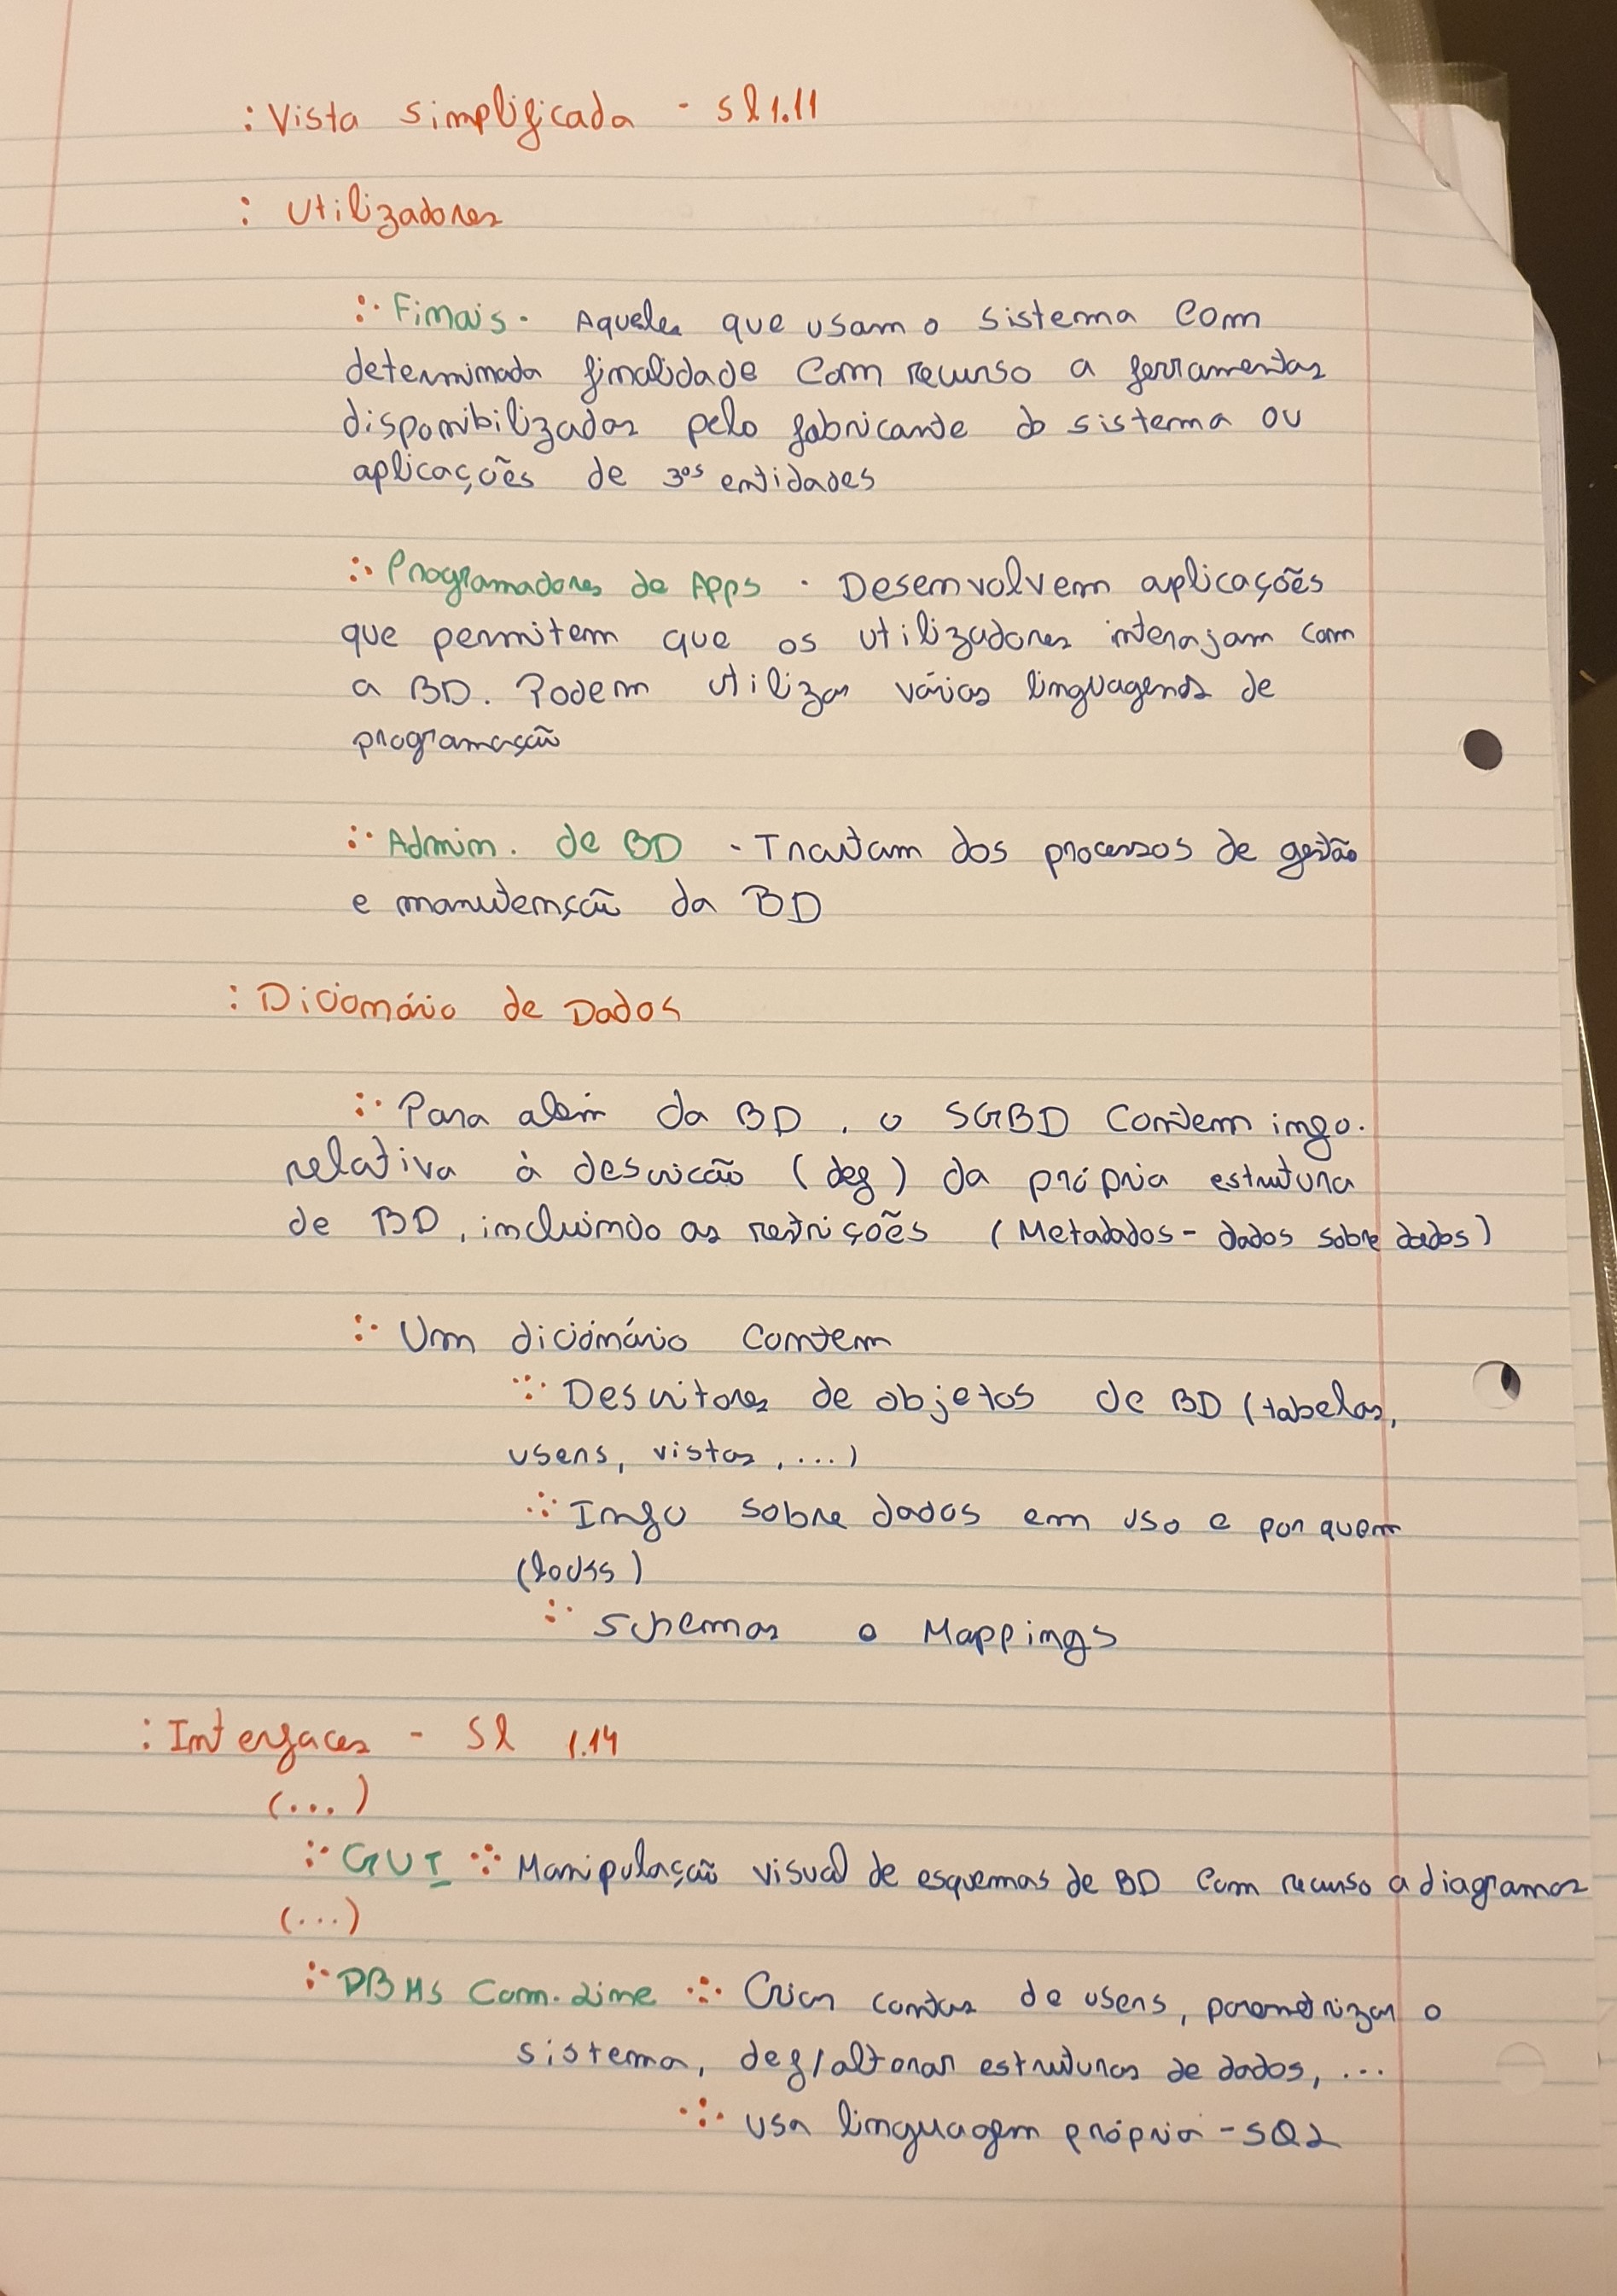 : Vista simplificada - Sl 1.11
: Utilizadores
:· Finais. Aqueles que usam o sistema com
determinada finalidade com recurso a ferramentas
disponibilizadas pelo fabricante do sistema ou
aplicações de 3ºs entidades
:· Programadores de Apps . Desenvolvem aplicações
que permitem que os utilizadores interajam com
a BD. Podem utilizar várias linguagens de
programação
:· Admin. de BD - Tratam dos processos de gestão
e manutenção da BD
: Dicionário de Dados
:· Para além da BD, o SGBD contem info.
relativa à descrição (def) da própria estrutura
de BD, incluindo as restrições (Metadados - dados sobre dados)
:· Um dicionário contem
:: Descritores de objetos de BD (tabelas,
users, vistas, ...)
:: Info sobre dados em uso e por quem
(locks)
:· Schemas e Mappings
: Interfaces - Sl 1.14
(...)
:· GUI :: Manipulação visual de esquemas de BD com recurso a diagramas
(...)
:· DBMS Com. Line :: Criar contas de users, parametrizar o
sistema, def/alterar estruturas de dados, ...
:: usa linguagem própria - SQL